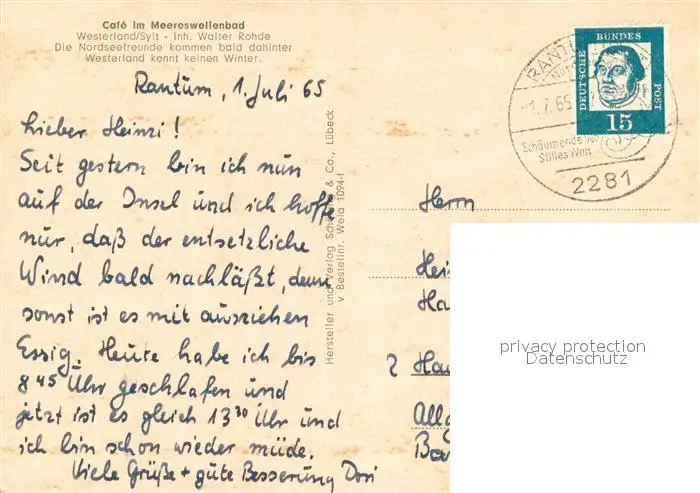 Café im Meereswellenbad
Westerland/Sylt - Inh. Walter Rohde
Die Nordseefreunde kommen bald dahinter
Westerland kennt keinen Winter.
Rantum, 1. Juli 65
Lieber Heinzi!
Seit gestern bin ich nun
auf der Insel und ich hoffe
nur, daß der entsetzliche
Wind bald nachläßt, denn
sonst ist es mit ausziehen
Essig. Heute habe ich bis
8 45 Uhr geschlafen und
jetzt ist es gleich 13 30 Uhr und
ich bin schon wieder müde.
Viele Grüße + gute Besserung Dori
Hersteller und Verlag & Co., Lübeck
v Bestellnr. Wela 1094-f
RANTUM
1.7.65
Schäumende See
Stilles Watt
2281
DEUTSCHE BUNDES POST
15
Herrn
Hei
Ha
2 Ha
Allg
Ba
privacy protection
Datenschutz